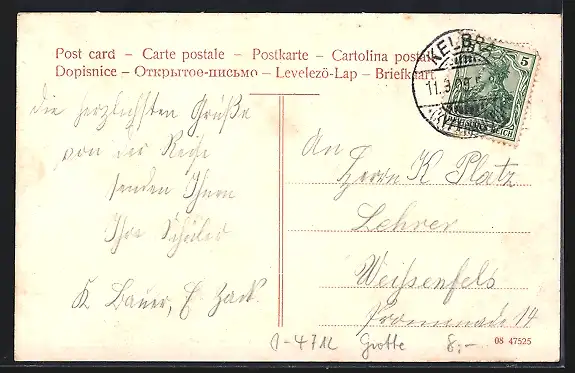 Post card – Carte postale – Postkarte – Cartolina postale
Dopisnice – Открытое-письмо – Levelezö-Lap – Briefkaart
KELBRA
11.9.09
5
REICH
Die herzlichsten Grüße
von der Reise
senden Ihnen
Ihre Schüler
K Bauer, E. Hack.
An
Herrn K Platz
Lehrer
Weißenfels
Promenade 14
Grotte 8,-
08 47525